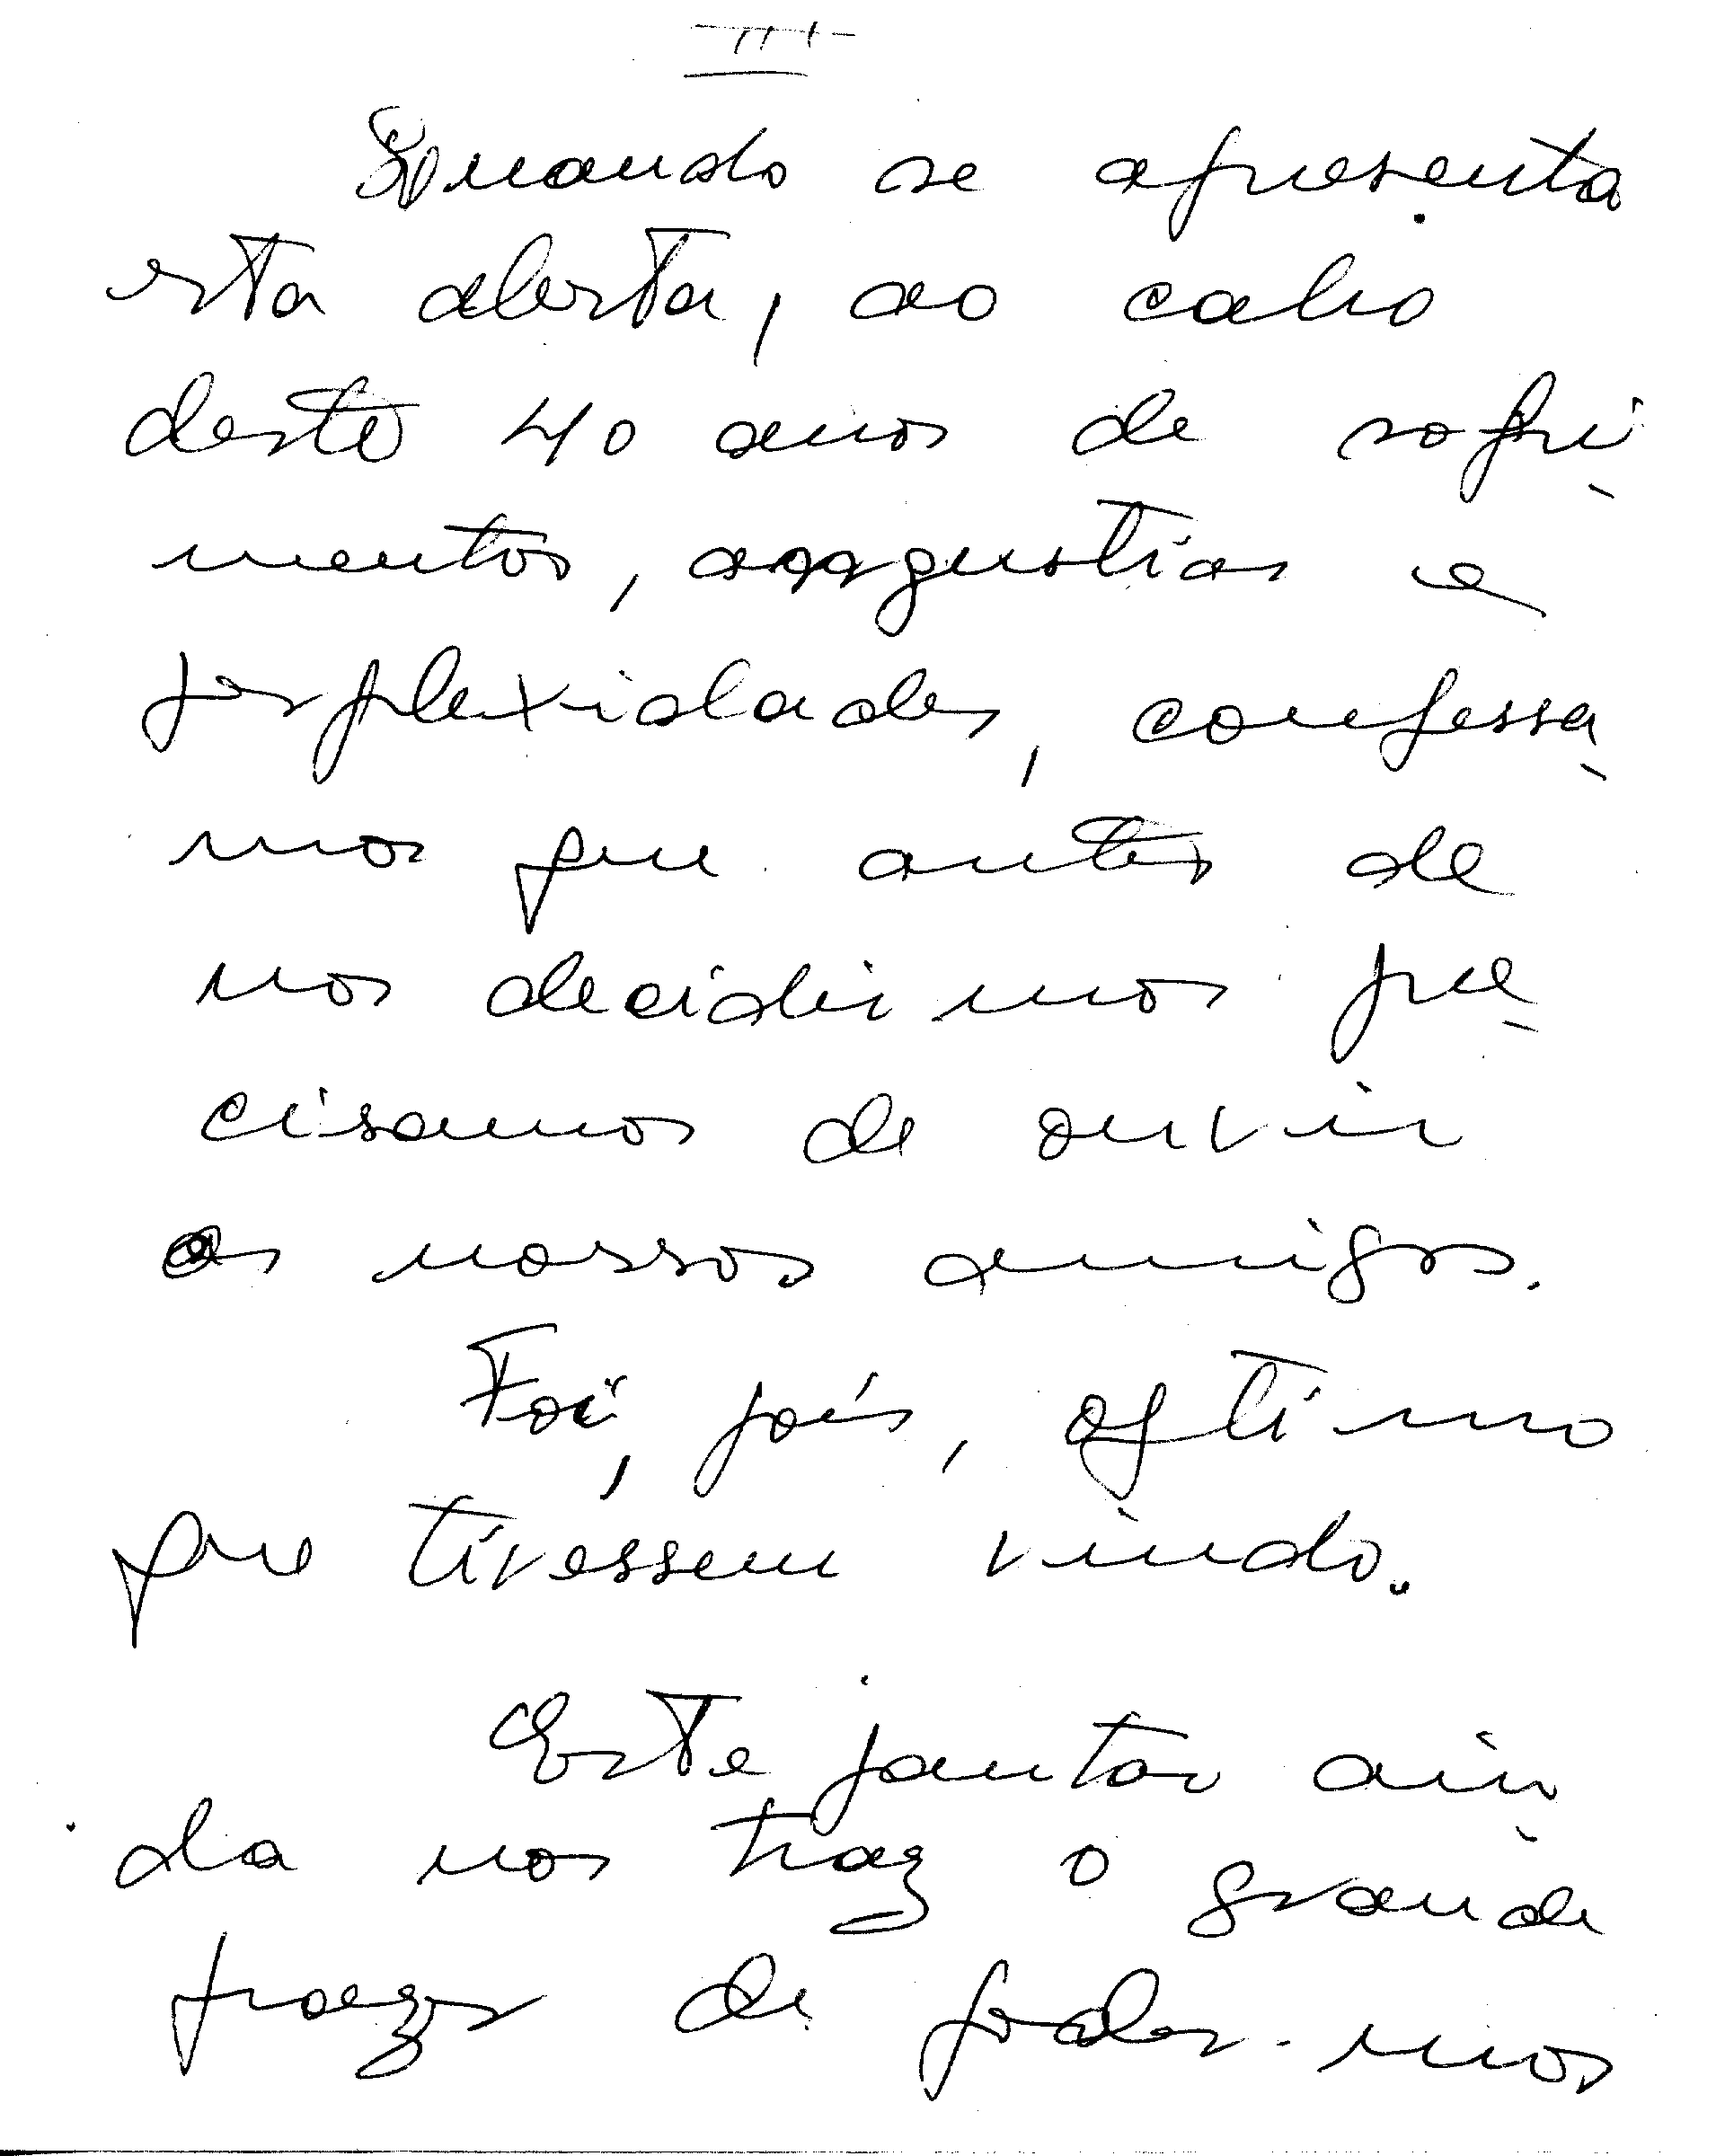 III
Quando se apresenta
esta aberta, ao cabo
deste 40 anos de sofri-
mentos, angustias e
perplexidades, confessa-
mos que antes de
nos decidirmos pre-
cisamos de ouvir
os nossos amigos.
Foi, pois, optimo
que tivessem vindo.
Este jantar ain-
da nos traz o grande
prazer de poder-mos